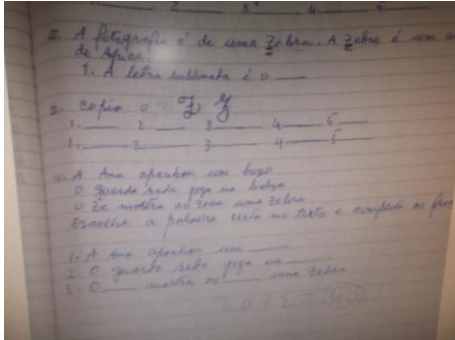 1. ____ 2. ____ 3. ____ 4. ____ 5. ____
II. A fotografia é de uma Zebra. A Zebra é um a
de África.
1. A letra sublinhada é o ____
copia o Z Z
1. ____ 2 ____ 3 ____ 4 ____ 5 ____
1. ____ 2 ____ 3 ____ 4 ____ 5
A Ana apanhou um
O guarda rede joga na
O Zé mostra ao uma Zebra
Escolha a palavra certo no texto e complete as fras
1. A Ana apanhou um ____
2. O guarda rede joga na ____
3. O ____ mostra ao ____ uma Zebra